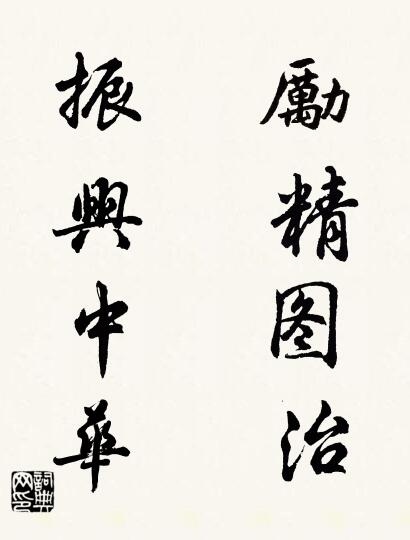 勵精图治
振興中華
詞典网印